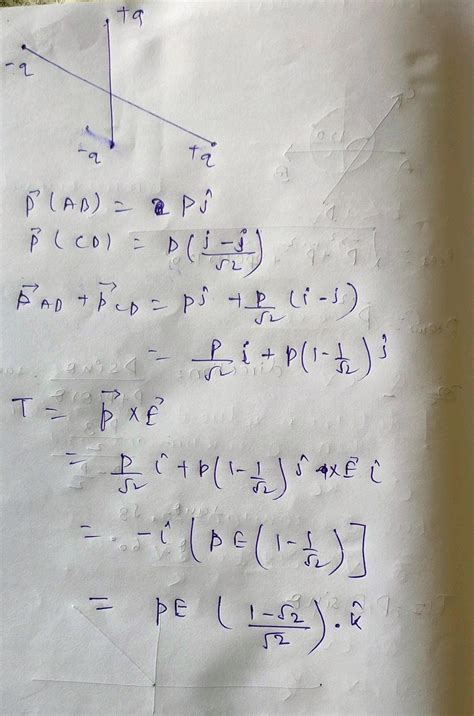 +q
-q
-q +q
p⃗ (AB) = pĵ
p⃗ (CD) = p(i-j/√2)
p⃗AD + p⃗CD = pĵ + p/√2 (i-j)
= p/√2 î + p(1-1/√2) ĵ
T = p⃗ × E⃗
= p/√2 î + p(1-1/√2) ĵ × E⃗ î
= -î [pE(1-1/√2)]
= pE (1-√2/√2).k̂